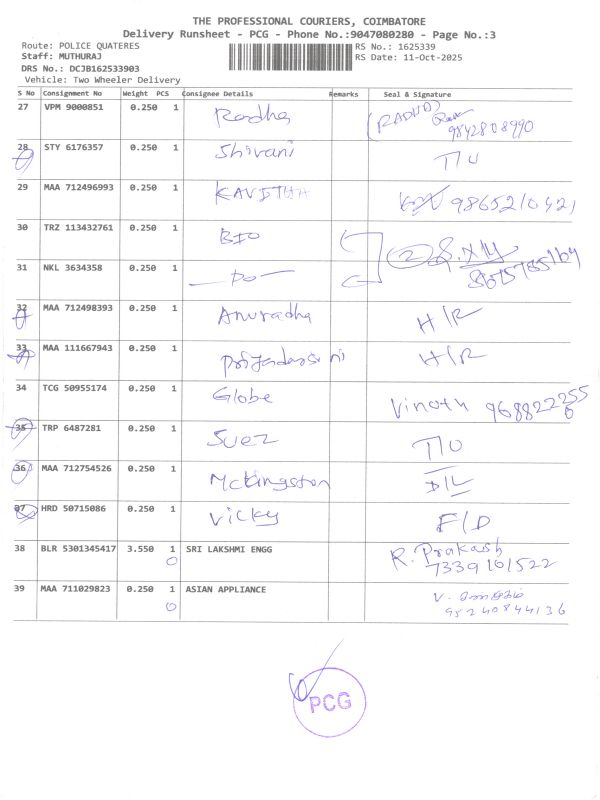 THE PROFESSIONAL COURIERS, COIMBATORE
Delivery Runsheet - PCG - Phone No.:9047080280 - Page No.:3
Route: POLICE QUATERES RS No.: 1625339
Staff: MUTHURAJ RS Date: 11-Oct-2025
DRS No.: DCJB162533903
Vehicle: Two Wheeler Delivery
S No Consignment No Weight PCS Consignee Details Remarks Seal & Signature
27 VPM 9000851 0.250 1 Radha (RADHA)
9842808990
28 STY 6176357 0.250 1 Shivani T/U
29 MAA 712496993 0.250 1 KAVITHA 9865210421
30 TRZ 113432761 0.250 1 BIO 2
31 NKL 3634358 0.250 1 —DO—
32 MAA 712498393 0.250 1 Anuradha H/R
33 MAA 111667943 0.250 1 Priyadarsini H/R
34 TCG 50955174 0.250 1 Globe Vinoth 9688222550
35 TRP 6487281 0.250 1 Suez T/U
36 MAA 712754526 0.250 1 Mckingston D/L
37 HRD 50715086 0.250 1 Vicky F/D
38 BLR 5301345417 3.550 1 SRI LAKSHMI ENGG R. Prakash
0 7339101522
39 MAA 711029823 0.250 1 ASIAN APPLIANCE V.
0 95240844136
PCG